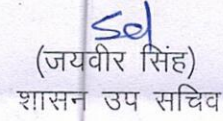 Sd
(जयवीर सिंह)
शासन उप सचिव